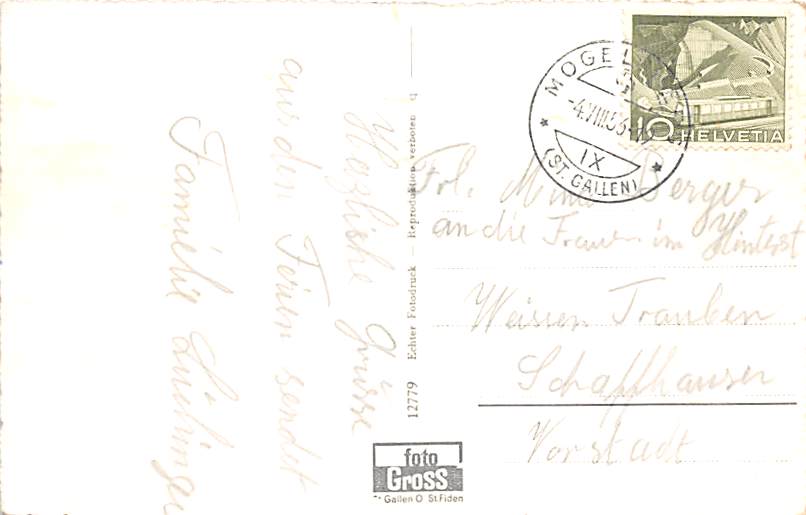 Herzliche Grüsse
aus den Ferien sendet
Familie
12779 Echter Fotodruck — Reproduktion verboten q
MOGEL
-4.VIII.56
IX
(ST. GALLEN)
10 HELVETIA
Frl. Berger
an die Frauen im
Weissen Trauben
Schaffhausen
Vorstadt
foto
Gross
St Gallen O St.Fiden